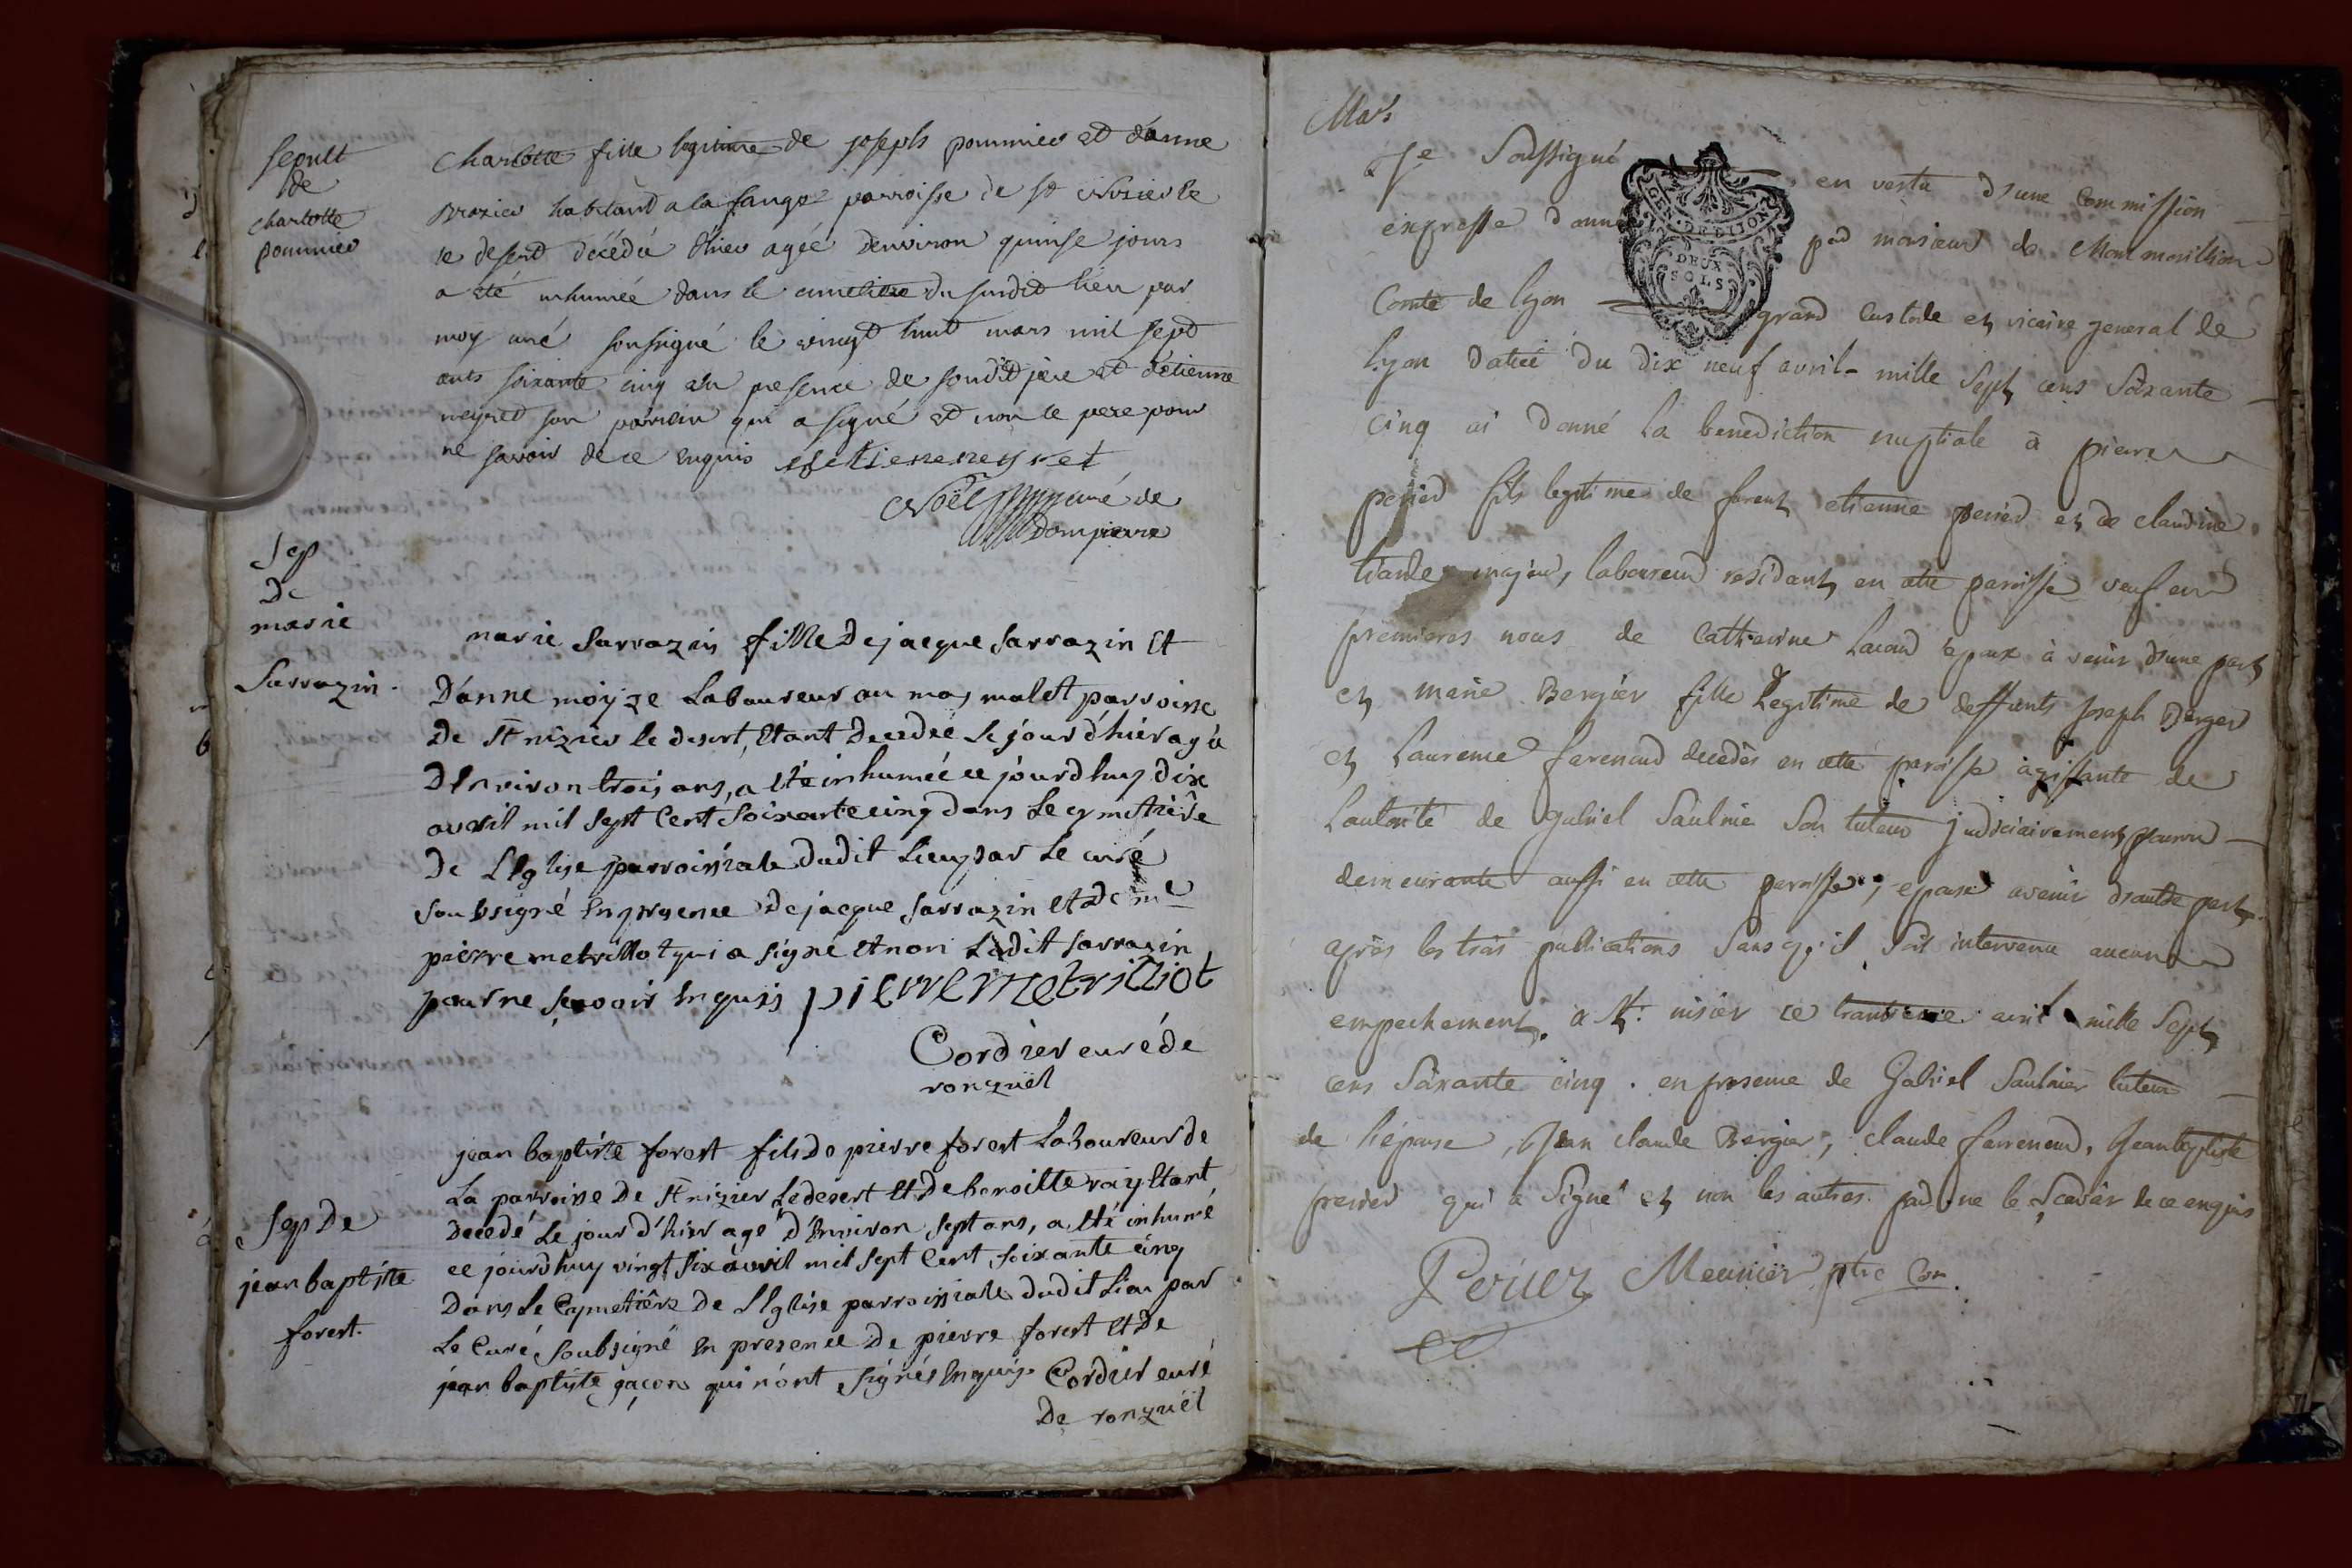 sepult
de
charlotte
pommier
Charlotte fille legitime de joseph pommier et d'anne
Brazier habitant a la fange parroisse de st Nizier le
le desert décédée d'hier agée d'environ quinse jours
a été inhumée dans le cimetiere du susdit lieu par
moy curé soussigné le vingt huit mars mil sept
cents soixante cinq en presence de sondit pere et d'etienne
neyret son parrain qui a signé et non le pere pour
ne savoir de ce enquis etienneneyret
Noël curé de
Dompierre
Sep
De
marie
Sarrazin.
marie Sarrazin fille De jacque Sarrazin Et
D'anne moyze Laboureur au mas malet parroisse
De St nizier le desert, Etant Decedée le jour d'hier agée
D'Environ trois ans, a Eté inhumée ce jourdhuy dix
avril mil Sept Cent Soixante cinq dans Le cymetiére
De L'Eglise parroissiale dudit Lieu par Le curé
Soubsigné En presence De jacque Sarrazin Et De me
pierre metrillot qui a signé Et non Ledit sarrazin
pour ne sçavoir Enquis pierre metrilliot
Cordier curé de
ronzuël
Sep De
jean baptiste
forest.
jean baptiste forest fils De pierre forest Laboureur de
La parroisse De St nizier Le desert Et De benoitte ray Etant
Decedé Le jour d'hier agé d'Environ sept ans, a Eté inhumé
ce jourdhuy vingt six avril mil sept Cent soixante cinq
Dans Le Cymetiére De L'Eglise parroissiale dudit Lieu par
Le Curé soubsigné En presence De pierre forest Et De
jean baptiste gaçon qui n'ont signés Enquis. Cordier curé
De ronzuël
Mar.
Je Soussigné en vertu d'une Commission
expresse donnée par monsieur de Montmorillion
GEN. DE DIJON
DEUX
SOLS
Comte de lyon grand Custode et vicaire general de
lyon datée du dix neuf avril mille Sept cens Soixante
cinq ai donné la benediction nuptiale à pierre
perier fils legitime de feu etienne perier et de claudine
liarde majeur, laboureur residant en cette paroisse veuf en
premieres noces de Catherine Lacour epoux à venir d'une part
et marie Bergier fille Legitime de deffunts Joseph Berger
et Laurence farenoud decedés en cette paroisse agissante de
L'autorité de gabriel Saulnie Son tuteur judiciairement pourvu
demeurante aussi en cette paroisse, epouse avenir d'autre part
après les trois publications Sans qu'il Soit intervenu aucun
empechement. a St. nisier ce trantieme avril mille Sept
cens Soixante cinq. en presence de Gabriel Saulnier tuteur
de l'épouse, Jean claude Bergier, claude farrenoud, Jean baptiste
perrier qui a Signé et non les autres pour ne le Scavoir de ce enquis
Perier Meunier ptre Com.